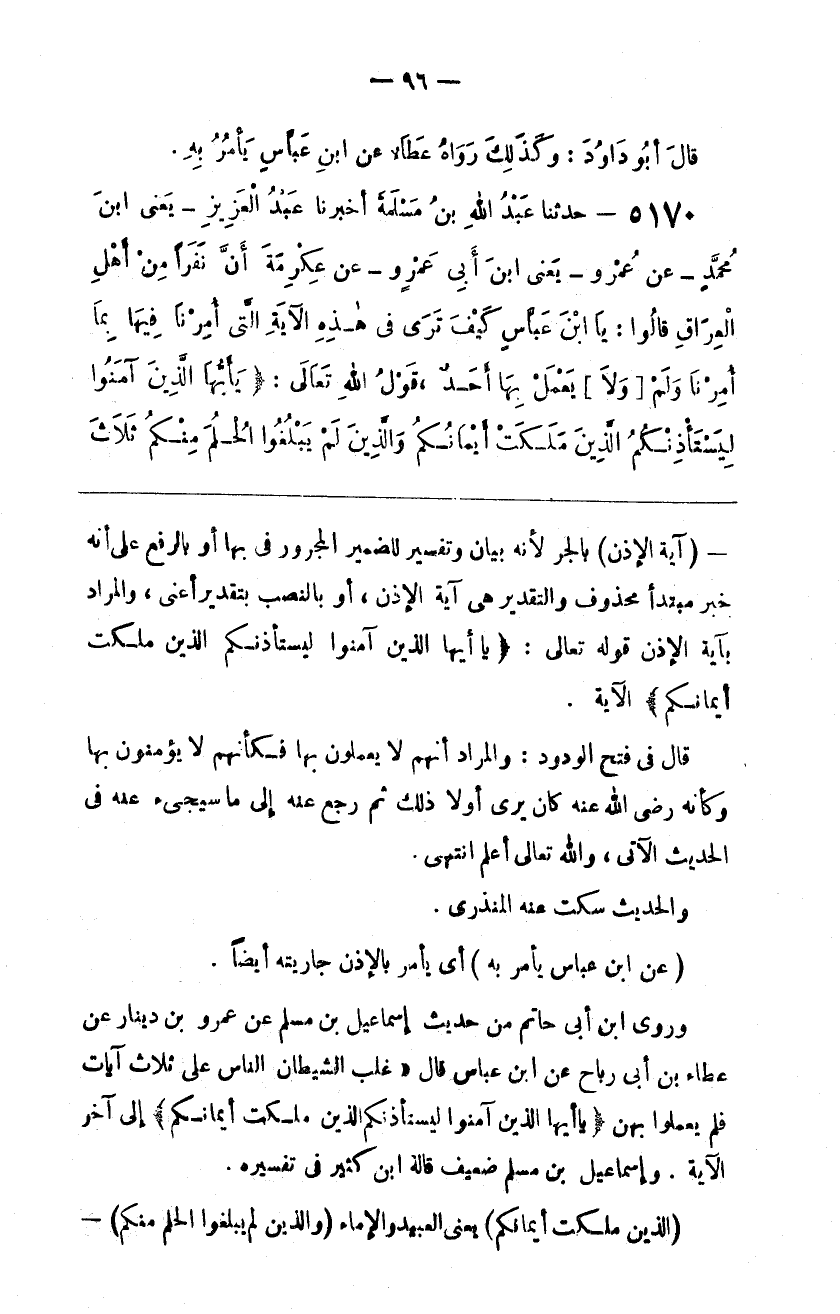 — ٩٦ —
قالَ أبُو دَاوُدَ : وَكَذَلِكَ رَوَاهُ عَطَاء عن ابنِ عَبَّاسٍ يَأْمُرُ بِهِ .
٥١٧٠ — حدثنا عَبْدُ اللهِ بنُ مَسْلَمَةَ أخبرنا عَبْدُ الْعَزِيزِ ـ يَعْنى ابنَ
مُحمَّدٍ ـ عن عُمْرِو ـ يَعْنى ابنَ أبِى عَمْرٍو ـ عن عِكْرِمَةَ أَنَّ نَفَراً مِنْ أَهْلِ
الْعِرَاقِ قالُوا : يا ابْنَ عَبَّاسٍ كَيْفَ تَرَى فى هٰذِهِ الآيَةِ الَّتى أُمِرْنَا فِيهَا بِمَا
أُمِرْنَا وَلَمْ [ وَلاَ ] يَعْمَلْ بِهَا أَحَدٌ ، قَوْلُ اللهِ تَعَالَى : ﴿ يَأَيُّهَا الَّذِينَ آمَنُوا
لِيَسْتَأْذِنْكُمُ الَّذِينَ مَلَكَتْ أَيْمَانُكُمُ وَالَّذِينَ لَمْ يَبْلُغُوا الْحُلُمَ مِنْكمُ ثَلَاثَ
— (آية الإذن) بالجر لأنه بيان وتفسير للضمير المجرور فى بها أو بالرفع على أنه
خبر مبتدأ محذوف والتقدير هى آية الإذن ، أو بالنصب بتقدير أعنى ، والمراد
بآية الإذن قوله تعالى : ﴿ يا أيها الذين آمنوا ليستأذنكم الذين ملكت
أيمانكم ﴾ الآية .
قال فى فتح الودود : والمراد أنهم لا يعملون بها فكأنهم لا يؤمنون بها
وكأنه رضى الله عنه كان يرى أولا ذلك ثم رجع عنه إلى ما سيجىء عنه فى
الحديث الآتى ، والله تعالى أعلم انتهى .
والحديث سكت عنه المنذرى .
( عن ابن عباس يأمر به ) أى يأمر بالإذن جاريته أيضاً .
وروى ابن أبى حاتم من حديث إسماعيل بن مسلم عن عمرو بن دينار عن
عطاء بن أبى رباح عن ابن عباس قال « غلب الشيطان الناس على ثلاث آيات
فلم يعملوا بهن ﴿ يا أيها الذين آمنوا ليستأذنكم الذين ملكت أيمانكم ﴾ إلى آخر
الآية . وإسماعيل بن مسلم ضعيف قالة ابن كثير فى تفسيره .
(الذين ملكت أيمانكم) يعنى العبيد والإماء (والذين لم يبلغوا الحلم منكم) —